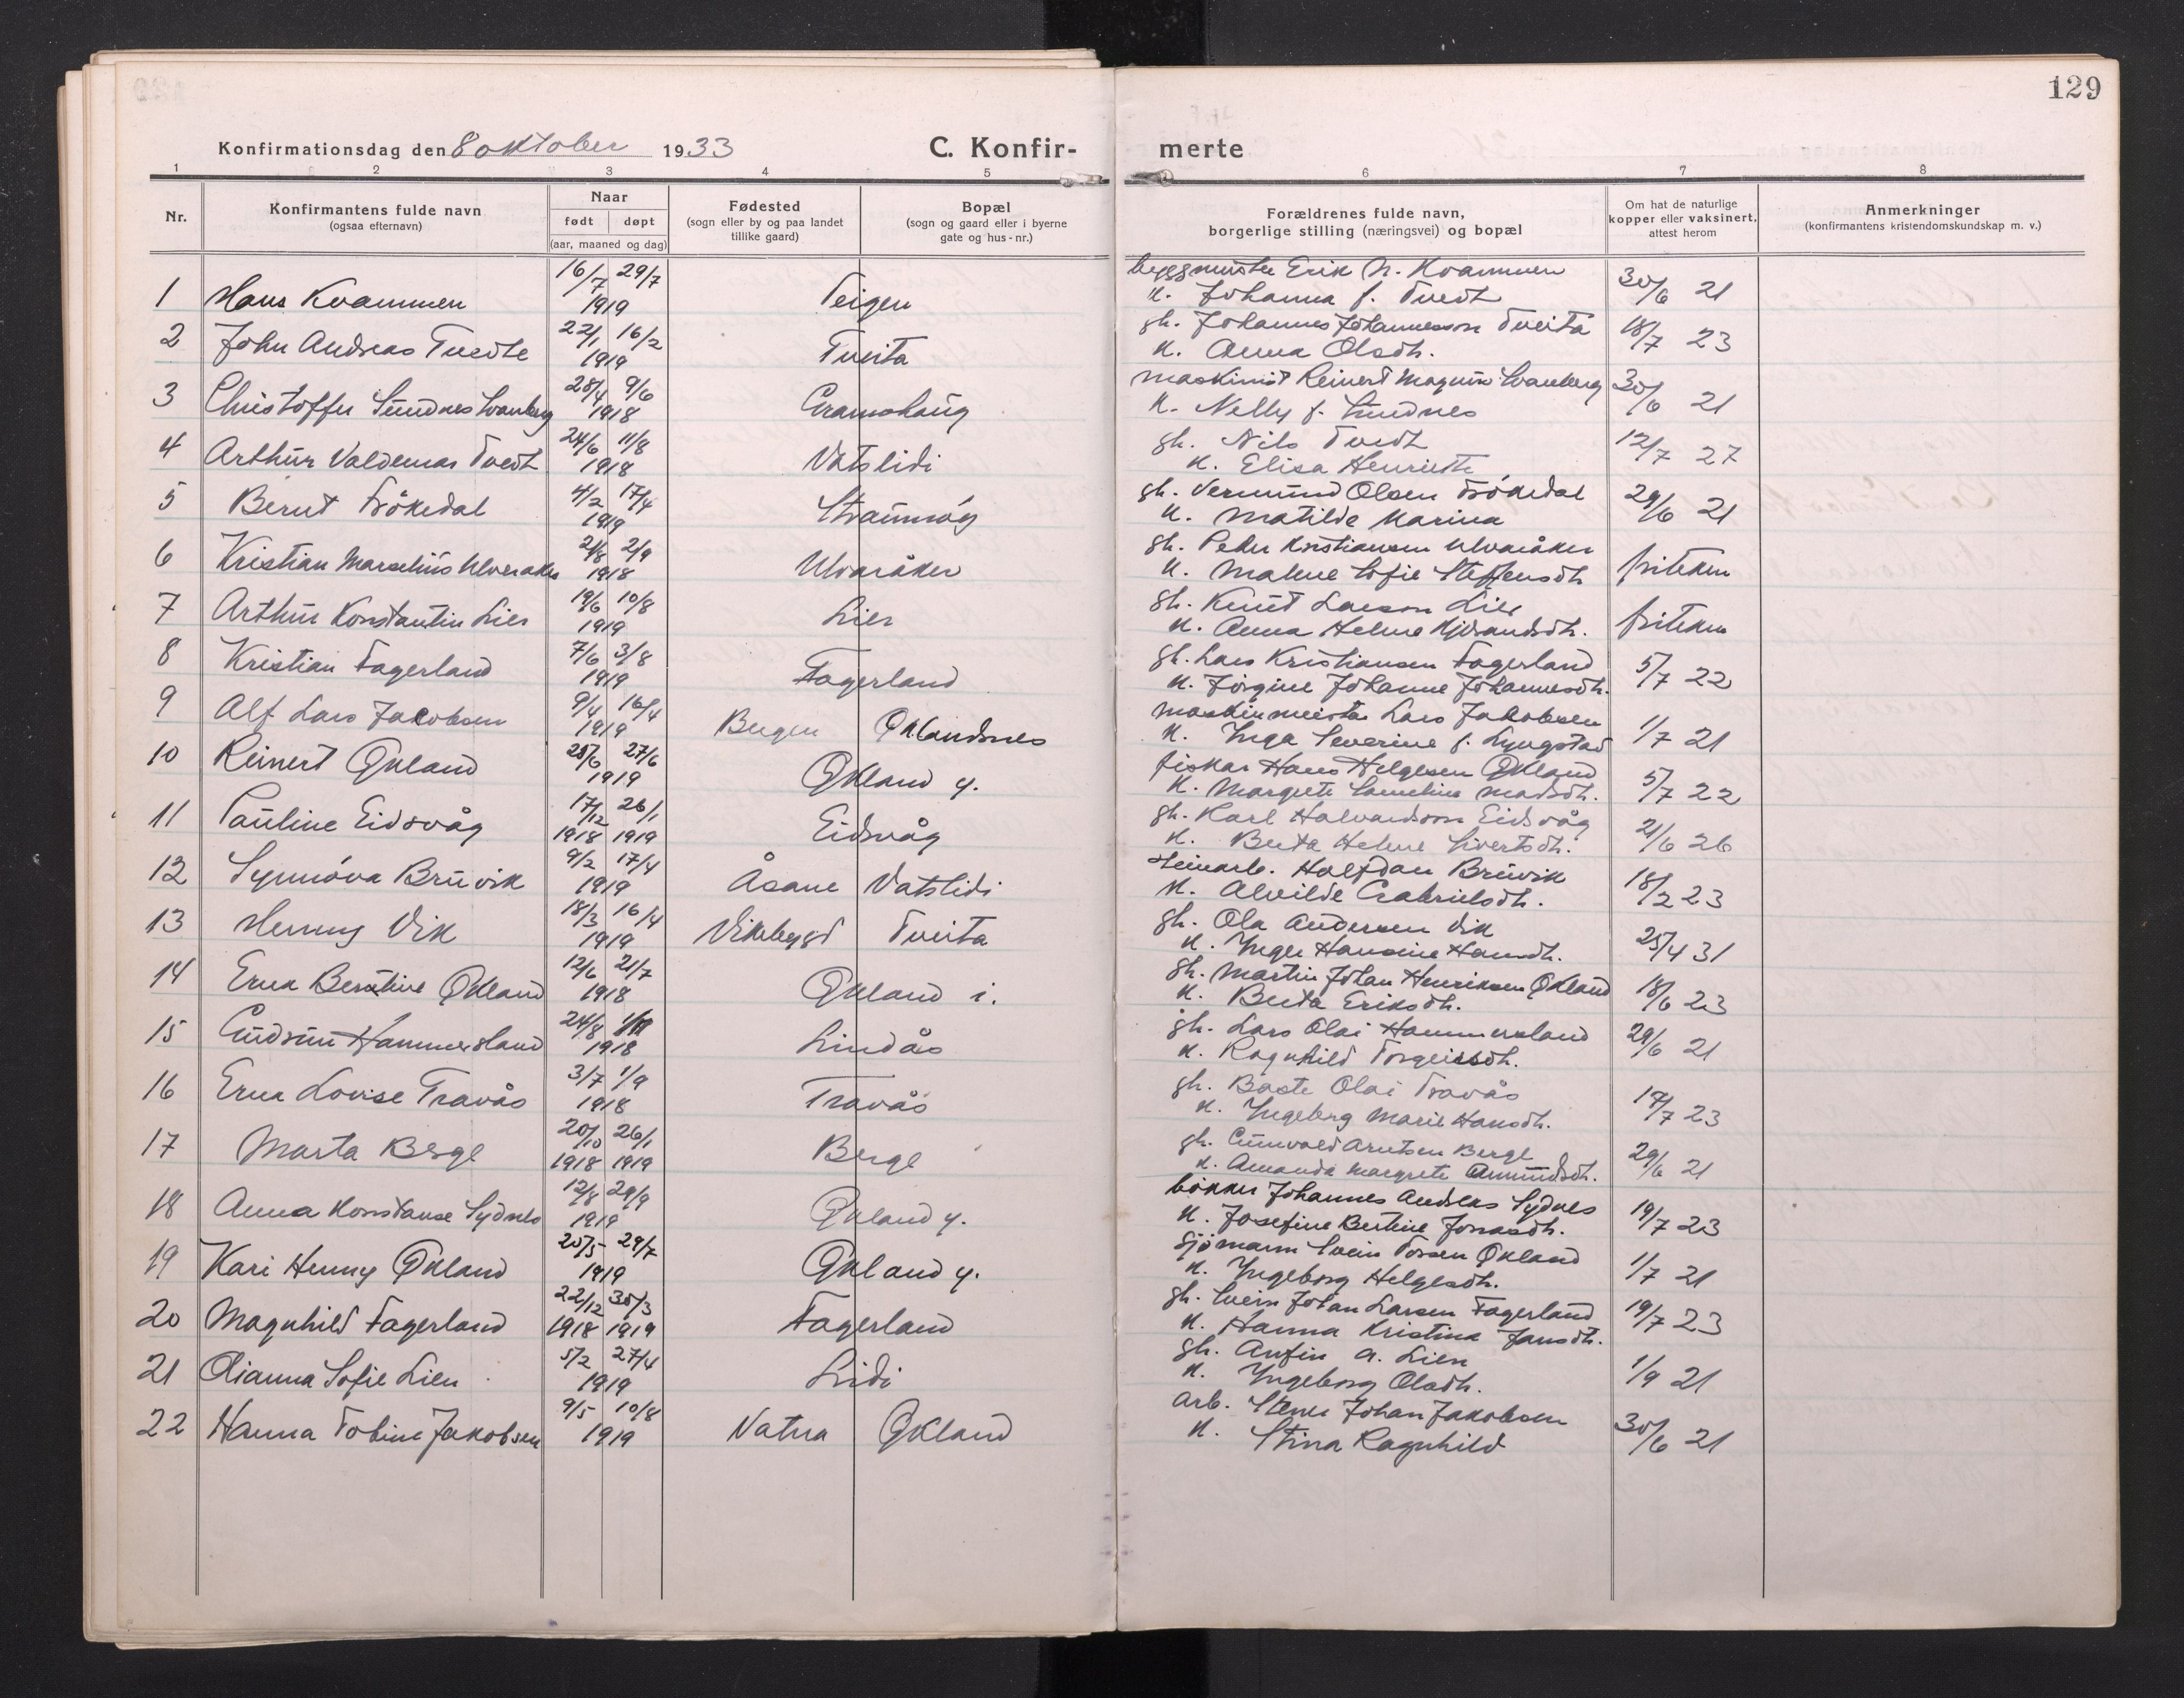 129
Konfirmationsdag den 8 oktober 1933 C. Konfir- merte
1 2 3 4 5 6 7 8
Nr. Konfirmantens fulde navn (ogsaa efternavn) Naar født døpt (aar, maaned og dag) Fødested (sogn eller by og paa landet tillike gaard) Bopæl (sogn og gaard eller i byerne gate og hus-nr.) Forældrenes fulde navn, borgerlige stilling (næringsvei) og bopæl Om hat de naturlige kopper eller vaksinert, attest herom Anmerkninger (konfirmantens kristendomskundskap m. v.)
1 Hans Kvammen 16/7 29/7 1919 Teigen byggmester Erik N. Kvammen 30/6 21
k. Johanna f. Tvedt
2 John Andreas Tvedte 22/1 16/2 1919 Tveita gb. Johannes Johannesson Tveita 18/7 23
k. Anna Olsdt.
3 Christoffer Sundnes Svanberg 28/4 9/6 1918 Gramshaug maskinist Reinert Magnus Svanberg 30/6 21
k. Nelly f. Sundnes
4 Arthur Valdemar Tvedt 24/6 11/8 1918 Vatslidi gb. Nils Tvedt 12/7 27
k. Elisa Henriette
5 Bernt Trökedal 4/2 17/4 1919 Straumsög gb. Vermund Olsen Trökedal 29/6 21
k. Matilde Marina
6 Kristian Marselius Ulveraker 21/8 2/9 1918 Ulvaråker gb. Peder Kristiansen Ulvaråker friteken
k. Malene Sofie Steffensdt.
7 Arthur Konstantin Lier 19/6 10/8 1919 Lier gb. Knut Larsen Lier friteken
k. Anna Helene
8 Kristian Fagerland 7/6 3/8 1919 Fagerland gb. Lars Kristiansen Fagerland 5/7 22
k. Jörgine Johanne Johannesdt.
9 Alf Lars Jakobsen 9/4 16/4 1919 Bergen Öklandsnes maskinmeister Lars Jakobsen 1/7 21
k. Inga Severine f. Lyngstad
10 Reinert Økland 25/6 27/6 1919 Økland y. fiskar Hans Helgesen Økland 5/7 22
k. Margrete Cornelius Madsdt.
11 Pauline Eidsvåg 17/12 26/1 1918 1919 Eidsvåg gb. Karl Halvardson Eidsvåg 21/6 26
k. Berta Helene Sivertsdt.
12 Synnöva Bruvik 9/2 17/4 1919 Åsane Vatslidi steinarb. Halfdan Bruvik 18/2 23
k. Alvilde Gabrielsdt.
13 Henny Vik 18/3 16/4 1919 Vikebygd Tveita gb. Ola Andersen Vik 25/4 31
k. Inger Hansine Hansdt.
14 Erna Bertine Økland 12/6 21/7 1918 Økland i. gb. Martin Johan Henriksen Økland 18/6 23
k. Berta Eriksdt.
15 Gudrun Hammersland 24/8 1918 Lindås gb. Lars Olai Hammersland 29/6 21
k. Ragnhild Torgeirsdt.
16 Erna Lovise Travås 3/7 1/9 1918 Travås gb. Baste Olai Travås 17/7 23
k. Ingeborg Marie Hansdt.
17 Marta Berge 20/10 26/1 1918 1919 Berge gb. Gunvald Arntsen Berge 29/6 21
k. Amanda Margrete Amundsdt.
18 Anna Konstanse Sydnes 12/8 29/9 1919 Økland y. bökker Johannes Andreas Sydnes 19/7 23
k. Josefine Bertine Jonasdt.
19 Kari Henny Økland 25/5 29/7 1919 Økland y. Sjömann Svein Torsen Økland 1/7 21
k. Ingeborg Helgesdt.
20 Magnhild Fagerland 22/12 30/3 1918 1919 Fagerland gb. Svein Johan Larsen Fagerland 19/7 23
k. Hanna Kristina Jansdt.
21 Dianna Sofie Lien 5/2 27/4 1919 Lidi gb. Anfin A. Lien 1/9 21
k. Ingeborg Olsdt.
22 Hanna Tobine Jakobsen 9/5 10/8 1919 Vatna Økland arb. Stener Johan Jakobsen 30/6 21
k. Stina Ragnhild